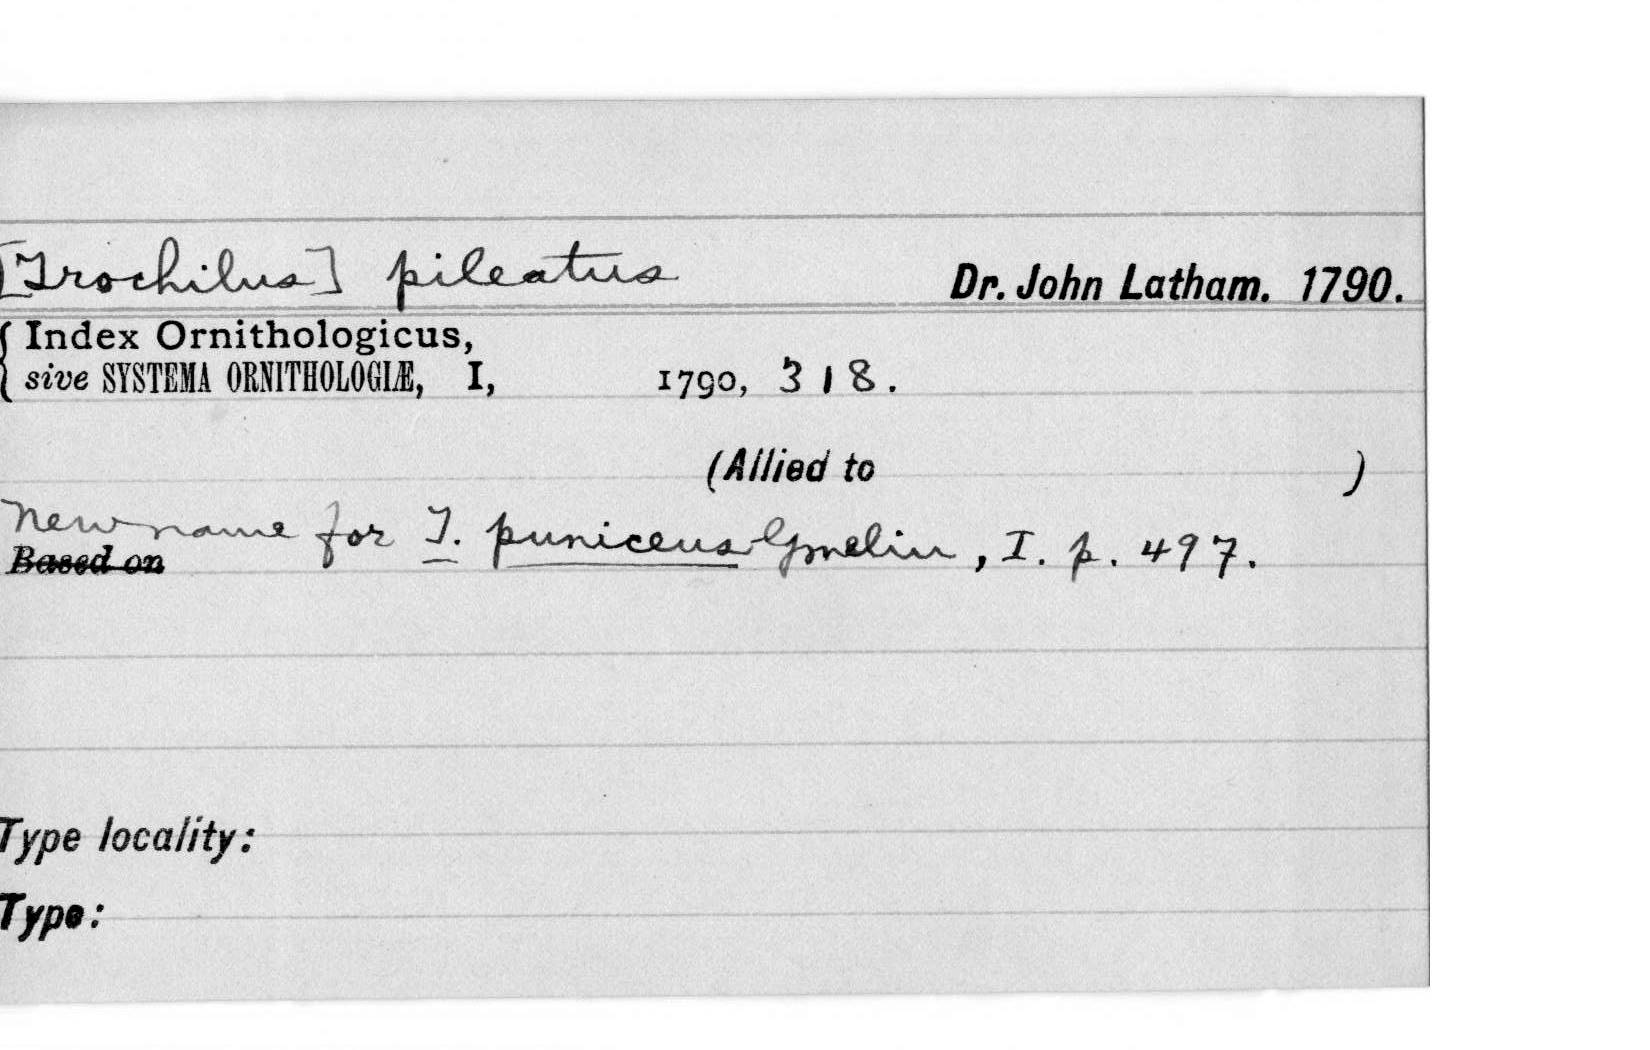 [Trochilus] pileatus Dr. John Latham. 1790.
{ Index Ornithologicus,
sive SYSTEMA ORNITHOLOGIÆ, I, 1790, 318.
(Allied to )
New name for T. puniceus Gmelin, I. p. 497.
Based on
Type locality:
Type: